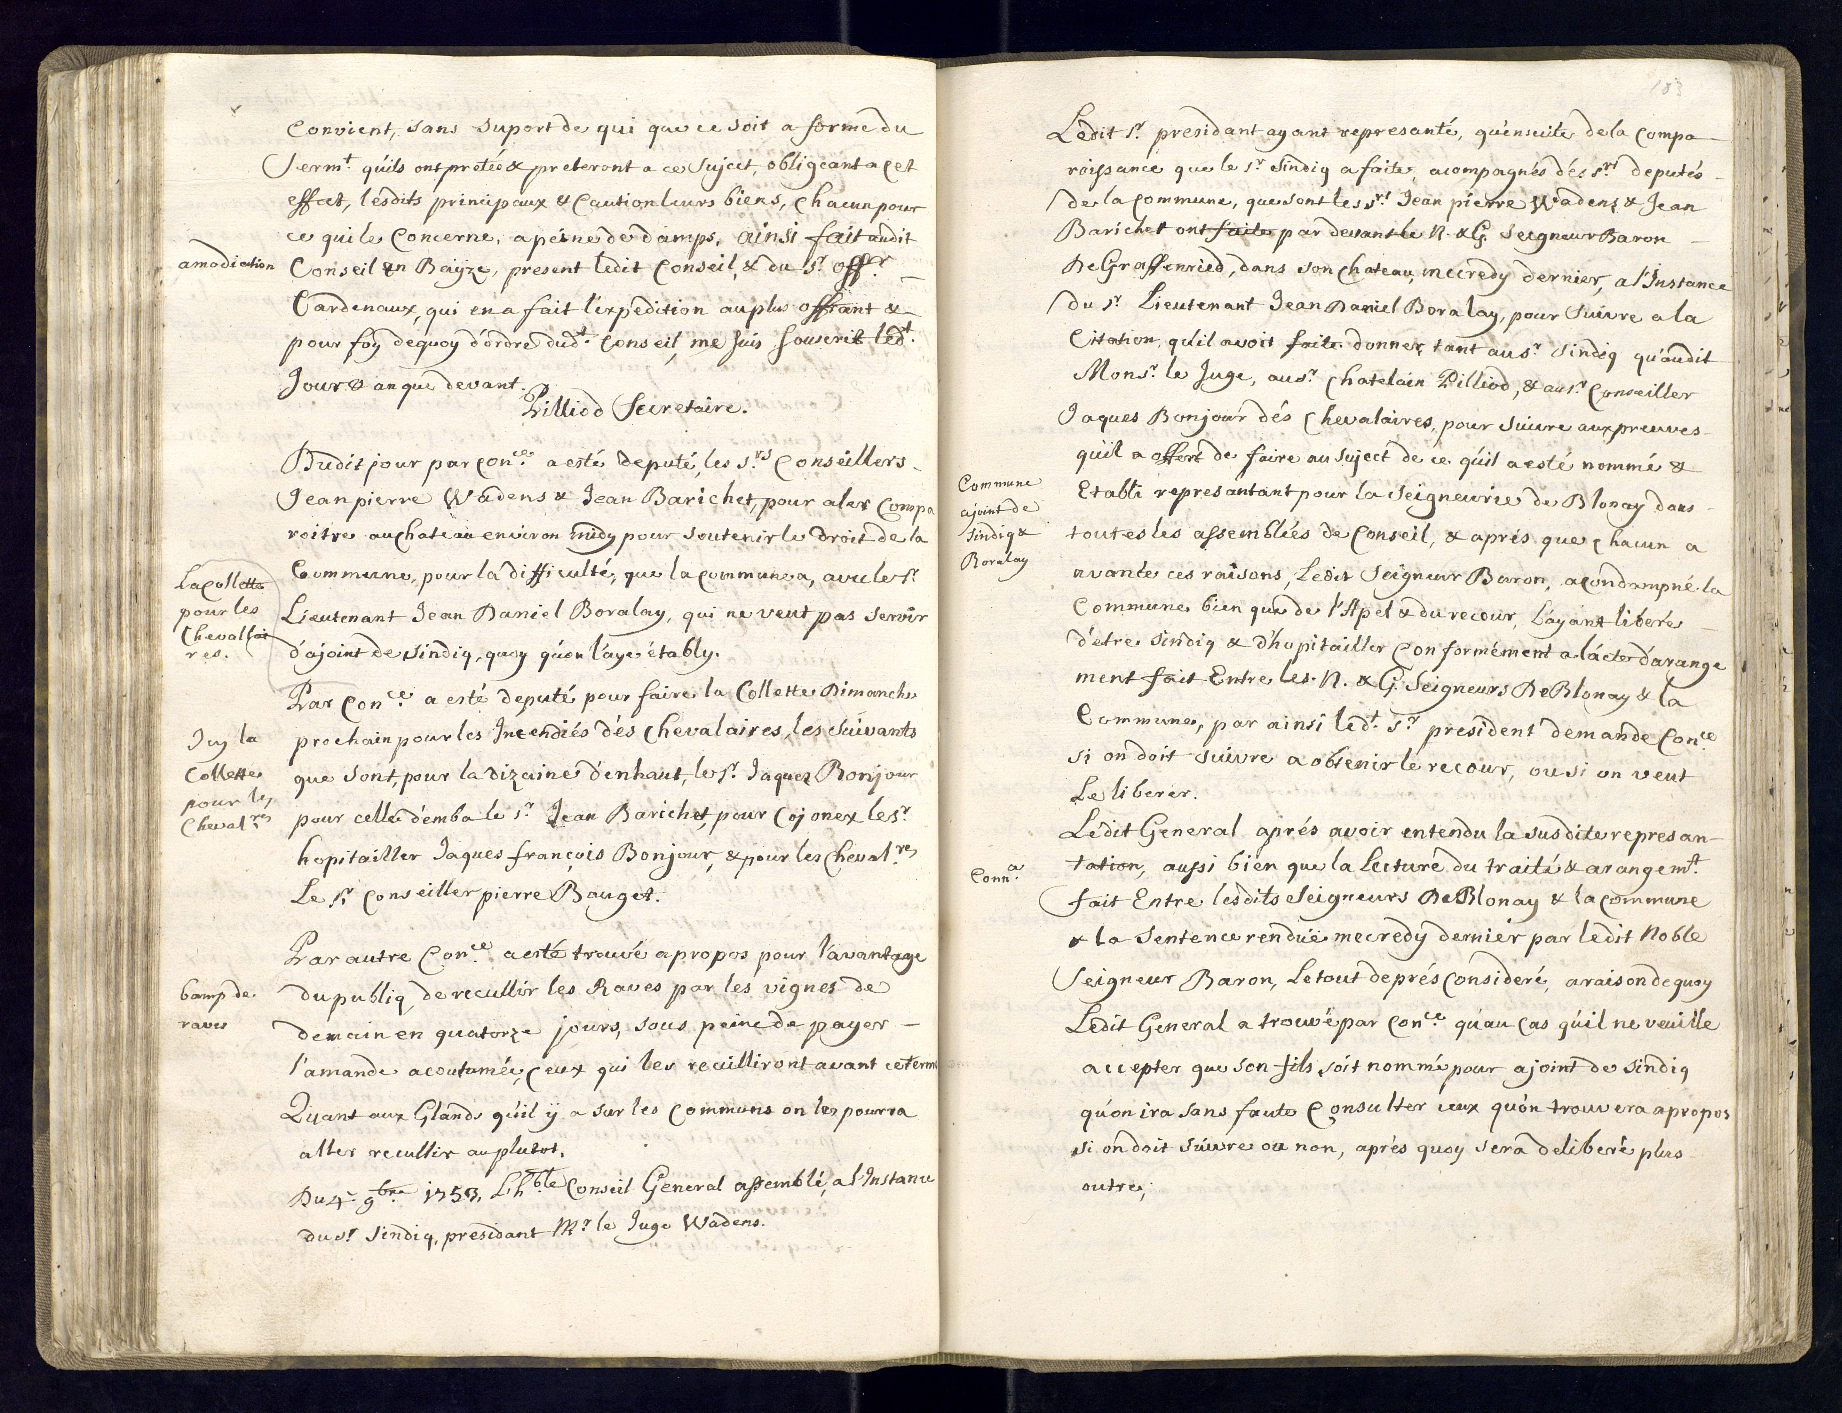 Convient, sans suport de qui que ce soit a forme du
Serm.t qu'ils ont pretée & preteront a ce sujet, obligeant a cet
effect, lesdits principaux & Caution leurs biens, Chacun pour
ce qui le Concerne, a peine de damps, ainsi fait audit
amodiation
Conseil en Baÿze, present ledit Conseil, & du S.r off.r
Cardenaux, qui en a fait l'expédition au plus offrant &
pour foy dequoy d'ordre dud.t Conseil, me suis souscrit led.t
Jour & an que devant.
Pilliod Secretaire.
Dudit jour par Con.ce a esté deputé, les S.rs Conseillers
Jean pierre Wadens & Jean Barichet, pour aler Compa
roitre au chateau environ midy pour soutenir le droit de la
Commune, pour la difficulté, que la commune a, avec le S.r
Lieutenant Jean Daniel Boralay, qui ne veut pas servir
d'ajoint de Sindiq, quoy qu'on l'aye établÿ.
La Collette
pour les
Chevallai
res.
Par Con.ce a esté deputé pour faire la Collette Dimanche
prochain pour les Incendiés dés Chevalaires, les Suivants
que sont, pour la dizaine d'enhaut, le S.r Jaques Bonjour
pour celle d'emba le S.r Jean Barichet, pour Cojonex le S.r
hopitailler Jaques françois Bonjour, & pour les Cheval.res
Le S.r Conseiller pierre Bauget.
Icy la
Collette
pour les
Cheval.res
Par autre Con.ce a esté trouvé a propos pour l'avantage
du publiq de recullir les Raves par les vignes de
demain en quatorze jours, sous peine de payer
l'amande acoutumée, Ceux qui les recuilliront avant ce terme
Quant aux Glands qu'il ÿ a sur les Communs on les pourra
aller recullir au plutot.
bamp de
raves
Du 4.e 9.bre 1753. L'h.ble Conseil General assemblé, a l'Instance
du S.r Sindiq, presidant M.r le Juge Wadens.
183
Ledit S.r presidant ayant represanté, qu'ensuite de la Compa
roissance que le S.r Sindiq a faite, acompagnés dés S.rs deputés
de la Commune, que sont les S.rs Jean pierre Wadens & Jean
Barichet ont faite par devant le N. & G. Seigneur Baron
De Graffenried, dans son Chateau, mecredy dernier, a l'Instance
du S.r Lieutenant Jean Daniel Boralay, pour Suivre a la
Citation, qu'il avoit faite donner, tant au S.r Sindiq qu'audit
Mons.r le Juge, au S.r Chatelain Pilliod, & au S.r Conseiller
Jaques Bonjour dés Chevalaires, pour suivre aux preuves
qu'il a offert de faire au sujet de ce qu'il a esté nommé &
Etabli represantant pour la Seigneurie de Blonay dans
toutes les assemblées de Conseil, & aprés que Chacun a
avancé ces raisons, Ledit Seigneur Baron, a condampné la
Commune bien que de l'Apel & du recour, L'ayant liberé
d'etre Sindiq & d'hopitailler Conformément a lácte d'arange
ment fait Entre les N. & G. Seigneurs De Blonay & la
Commune, par ainsi led.t S.r president demande Con.ce
si on doit suivre a obtenir le recour, ou si on veut
Le liberer.
Commune
ajoint de
Sindiq &
Boralay
Ledit General aprés avoir entendu la susdite represan
tation, aussi bien que la Lecture du traité & arangem.t
fait Entre lesdits Seigneurs De Blonay & la Commune
& la Sentence rendüe mecredy dernier par ledit Noble
Seigneur Baron, Le tout de prés Consideré, a raison dequoy
Ledit General a trouvé par Con.ce qu'au Cas qu'il ne veuille
accepter que son fils soit nommé pour ajoint de Sindiq
qu'on ira sans faute Consulter ceux qu'on trouvera a propos
si on doit suivre ou non, aprés quoy sera deliberé plus
outre;
Conn.a